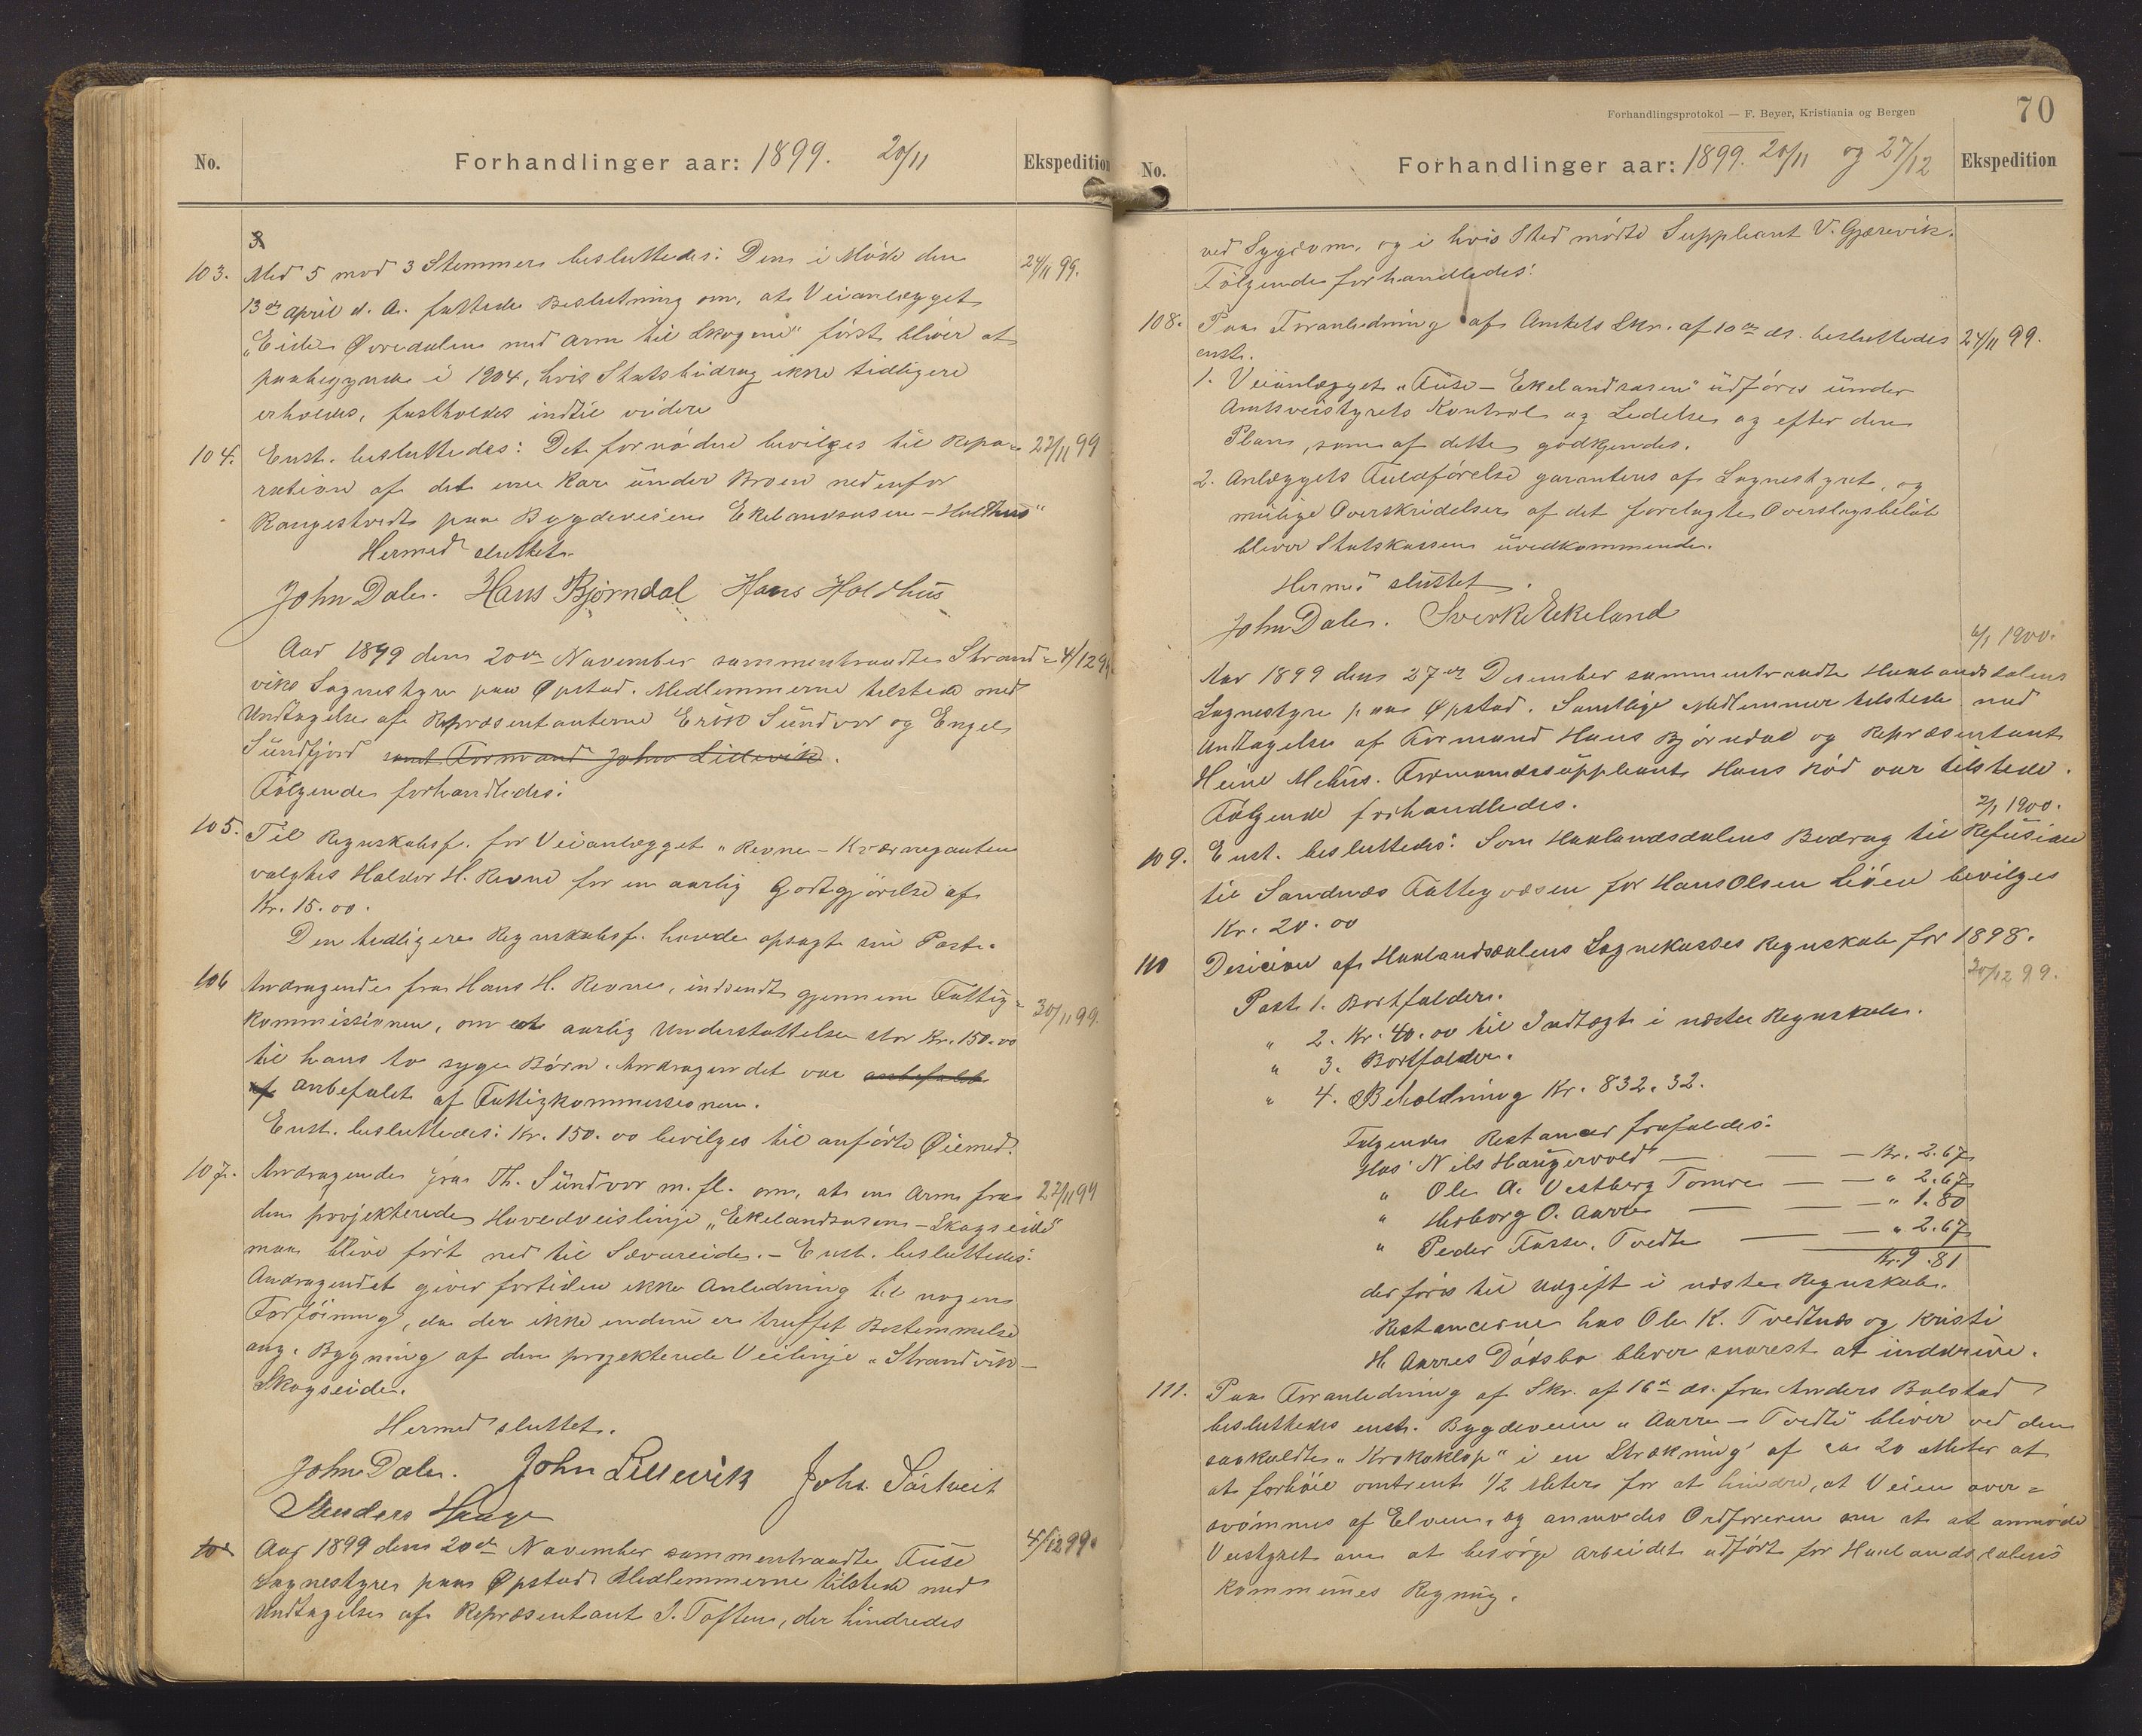 No. Forhandlinger aar: 1899. 20/11 Ekspedition
103. Med 5 mod 3 Stemmer besluttedes: Den i Møde den 24/11 99.
13de april d. A. fattede Beslutning om, at Veianlægget
„Eide Øvredalen med arm til Skogene" først bliver at
paabegynde i 1904, hvis Statsbidrag ikke tidligere
erholdes, fastholdes indtil videre
104. Enst. besluttedes: Det fornødne bevilges til Repa= 22/11 99
ration af det ene Kar under Broen nedenfor
Rangestvedt paa Bygdeveien Ekelandsosen – Holdhus"
Hermed sluttet.
John Dale. Hans Bjørndal Hans Holdhus
Aar 1899 den 20de November sammentraadte Strand= 4/12 99
viks Sognestyre paa Øpstad. Medlemmerne tilstede med
Undtagelse af Repræsentanterne Erik Sundvor og Engel
Sundfjord samt Formand John Lillevik.
Følgende forhandledes:
105. Til Regnskabsf. for Veianlægget „Revne – Kværnegauten
valgtes Haldor H. Revne for en aarlig Godtgjørelse af
Kr. 15.00.
Den tidligere Regnskabsf. havde opsagt sin Post.
106 Andragende fra Hans H. Revne, indsendt gjennem Fattig= 30/11 99.
kommissionen, om et aarlig Understøttelse stor Kr. 150.00
til hans to syge Børn. Andragendet var anbefalet
af anbefalet af Fattigkommissionen.
Enst. besluttedes: Kr. 150.00 bevilges til anførte Øiemed.
107. Andragende fra Th. Sundvor m. fl. om, at en Arm fra 22/11 99
den projekterede Hovedveislinje „Ekelandsosen – Skogseide"
maa blive ført ned til Sævareide. – Enst. besluttedes:
Andragendet giver fortiden ikke Anledning til nogen
Forføining, da der ikke endnu er truffet Bestemmelse
ang. Bygning af den projekterede Veilinje „Strandvik –
Skogseide.
Hermed sluttet.
John Dale. John Lillevik Johs. Sørtveit
Anders Hauge
Aar 1899 den 20de November sammentraadte Fuse 4/12 99.
Sognestyre paa Øpstad Medlemmerne tilstede med
Undtagelse af Repræsentant J. Toften, der hindredes
Forhandlingsprotokol — F. Beyer, Kristiania og Bergen 70
No. Forhandlinger aar: 1899. 20/11 og 27/12 Ekspedition
ved Sygdom, og i hvis Sted mødte Suppleant V. Gjærevik.
Følgende forhandledes:
108. Paa Foranledning af Amtets Skr. af 10de ds. besluttedes 24/11 99.
enst.
1. Veianlægget „Fuse – Ekelandsosen" udføres under
Amtsveistyrets Kontrol og Ledelse og efter den
Plan, som af dette godkjendes.
2. Anlæggets Fuldførelse garanteres af Sognestyret, og
mulige Overskridelser af det forelagte Overslagsbeløb
bliver Statskassen uvedkommende.
Hermed sluttet.
John Dale. Sverke Ekeland
6/1 1900.
Aar 1899 den 27de Desember sammentraadte Haalandsdalens
Sognestyre paa Øpstad. Samtlige Medlemmer tilstede med
Undtagelse af Formand Hans Bjørndal og Repræsentant
Heine Mehus. Formandssuppleant Hans Rød var tilstede.
Følgende forhandledes. 2/1 1900.
109. Enst. besluttedes: Som Haalandsdalens Bedrag til Refusion
til Sandnæs Fattegvæsen for Hans Olsen Liøen bevilges
Kr. 20.00
110 Desicion af Haalandsdalens Sognekasses Regnskab for 1898.
30/12 99.
Post 1. Bortfalder.
„ 2. Kr. 40.00 til Indtægt i næste Regnskab.
„ 3. Bortfalder.
„ 4. Beholdning Kr. 832.32.
Følgende Restancer frafaldes:
Hos Nils Haugervold — — — Kr. 2.67
„ Ole A. Vestberg Tomre — — „ 2.67
„ Herborg O. Aarre — — — „ 1.80
„ Peder Tosse, Tvedte — — „ 2.67
Kr. 9.81
der føres til Udgift i næste Regnskab.
Restancerne hos Ole K. Tvedtnæs og Kristi
H. Aarres Dødsbo bliver snarest at inddrive.
111. Paa Foranledning af Skr. af 16de ds. fra Anders Bolstad
besluttedes enst. Bygdeveien „Aarre – Tvedte" bliver ved den
saakaldte „Krokaklop" i en Strækning af ca 20 Meter at
at forhøie omtrent 1/2 Meter for at hindre, at Veien over=
svømmes af Elven, og anmodes Ordføreren om at at anmode
Veistyret om at besørge Arbeidet udført for Haalandsdalens
Kommunes Regning.